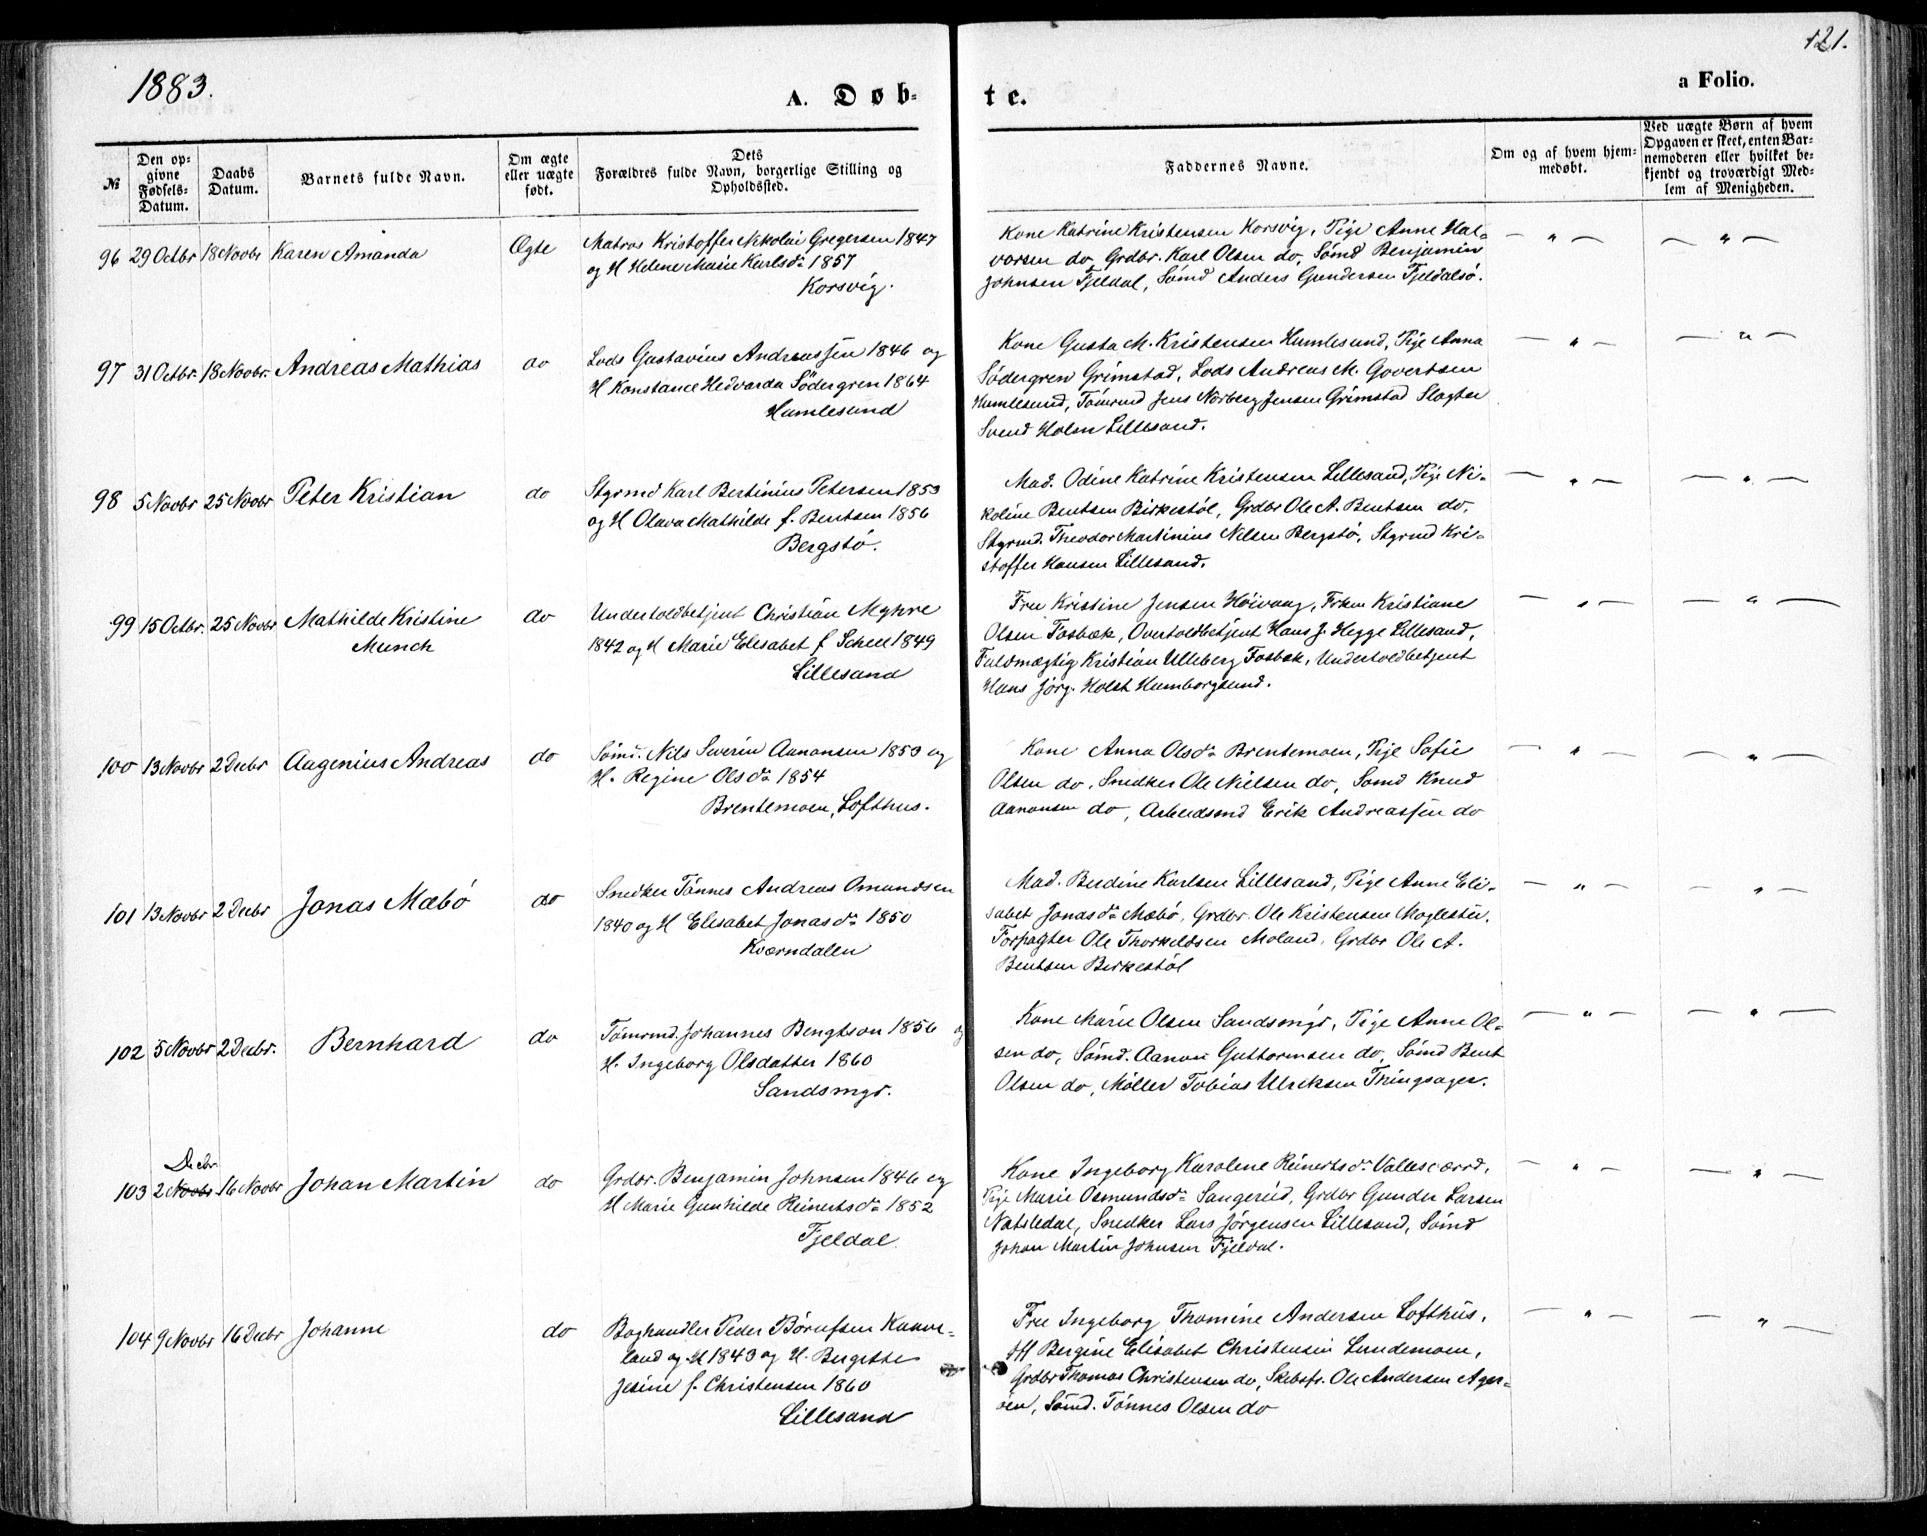 1883.
121.
A. Døb-
te.
a Folio.
№
Den op-
givne
Fødsels-
Datum.
Daabs
Datum.
Barnets fulde Navn.
Om ægte
eller uægte
født.
Dets
Forældres fulde Navn, borgerlige Stilling og
Opholdssted.
Faddernes Navne.
Om og af hvem hjem-
medøbt.
Ved uægte Børn af hvem
Opgaven er skeet, enten Bar-
nemoderen eller hvilket be-
kjendt og troværdigt Med-
lem af Menigheden.
96 29 Octbr 18 Novbr Karen Amanda Ægte
Matros Kristoffer Nikolai Gregersen 1847
og H Helene Marie Karlsdr 1857
Korsvig.
Kone Katrine Kristensen Korsvig, Pige Anne Hal-
vorsen do, Grdbr. Karl Olsen do, Sømd Benjamin
Johnsen Fjeldal, Sømd Anders Gundersen Fjeldalsø.
— " — — " —
97 31 Octbr. 18 Novbr. Andreas Mathias do
Lods Gustavius Andreassen 1846 og
H Konstance Hedvarda Södergren 1864
Humlesund
Kone Gusta M. Kristensen Humlesund, Pige Anna
Södergren Grimstad, Lods Andreas M. Govertsen
Humlesund, Tømrmd Jens Norberg Jensen Grimstad Slagter
Svend Holm Lillesand.
— " — — " —
98 5 Novbr 25 Novbr Peter Kristian do
Styrmd Karl Bertinius Petersen 1853
og H Olava Mathilde f. Bentsen 1856
Bergstø.
Mad. Odine Katrine Kristensen Lillesand, Pige Ni-
koline Bentsen Birkestøl, Grdbr Ole A. Bentsen do,
Styrmd. Theodor Martinius Nilsen Bergstø, Styrmd Kri-
stoffer Hansen Lillesand.
— " — — " —
99 15 Octbr. 25 Novbr Mathilde Kristine
Munch
do
Undertoldbetjent Christian Myhre
1842 og H Marie Elisabet f Scheel 1849
Lillesand
Fru Kristine Jensen Høivaag, Frken Kristiane
Olsen Fosbæk, Overtoldbetjent Hans J. Hegge Lillesand,
Fuldmægtig Kristian Ulleberg Fosbæk, Undertoldbetjent
Hans Jørg. Holst Humborgsund.
— " — — " —
100 13 Novbr 2 Decbr Augenius Andreas do
Sømd. Nils Severin Aanonsen 1853 og
H. Regine Olsdr 1854
Brentemoen, Lofthus.
Kone Anna Olsdr Brentemoen, Pige Sofie
Olsen do, Snedker Ole Nielsen do, Sømd Knud
Aanonsen do, Arbeidsmd Erik Andreassen do
— " — — " —
101 13 Novbr 2 Decbr Jonas Mæbø do
Snedker Tønnes Andreas Omundsen
1840 og H Elisabet Jonasdr 1850
Kværndalen
Mad. Berdine Karlsen Lillesand, Pige Anne Eli-
sabet Jonasdr Mæbø, Grdbr. Ole Kristensen Moglestu,
Forpagter Ole Thorkildsen Moland, Grdbr Ole A.
Bentsen Birkestøl
— " — — " —
102 5 Novbr 2 Decbr. Bernhard do
Tømrmd. Johannes Bengtson 1856 og
H. Ingeborg Olsdatter 1860
Sandsmyr.
Kone Marie Olsen Sandsmyr, Pige Anne Ol-
sen do, Sømd. Aanon Guttormsen do, Sømd Bent
Olsen do, Møller Tobias Ulriksen Thingsager.
— " — — " —
Decbr
103 2 Novbr 16 Novbr Johan Martin do
Grdbr. Benjamin Johnsen 1846 og
H Marie Gunhilde Reinertsdr 1852
Fjeldal
Kone Ingeborg Karoline Reinertsdr Vallesværd,
Pige Marie Osmundsdr Sangereid, Grdbr Gunder Larsen
Natsledal, Snedker Lars Jørgensen Lillesand, Sømd
Johan Martin Johnsen Fjeldal.
— " — — " —
104 9 Novbr 16 Decbr Johanne do
Boghandler Peder Børufsen Kaave-
land og H 1843 og H. Bergitte
Jesine f. Christensen 1860
Lillesand
Fru Ingeborg Thomine Andersen Lofthus,
Bergine Elisabet Christensen Lundemoen,
Grdbr Thomas Christensen do, Skibsfr. Ole Andersen Ager-
øen, Sømd. Tønnes Olsen do
— " — — " —